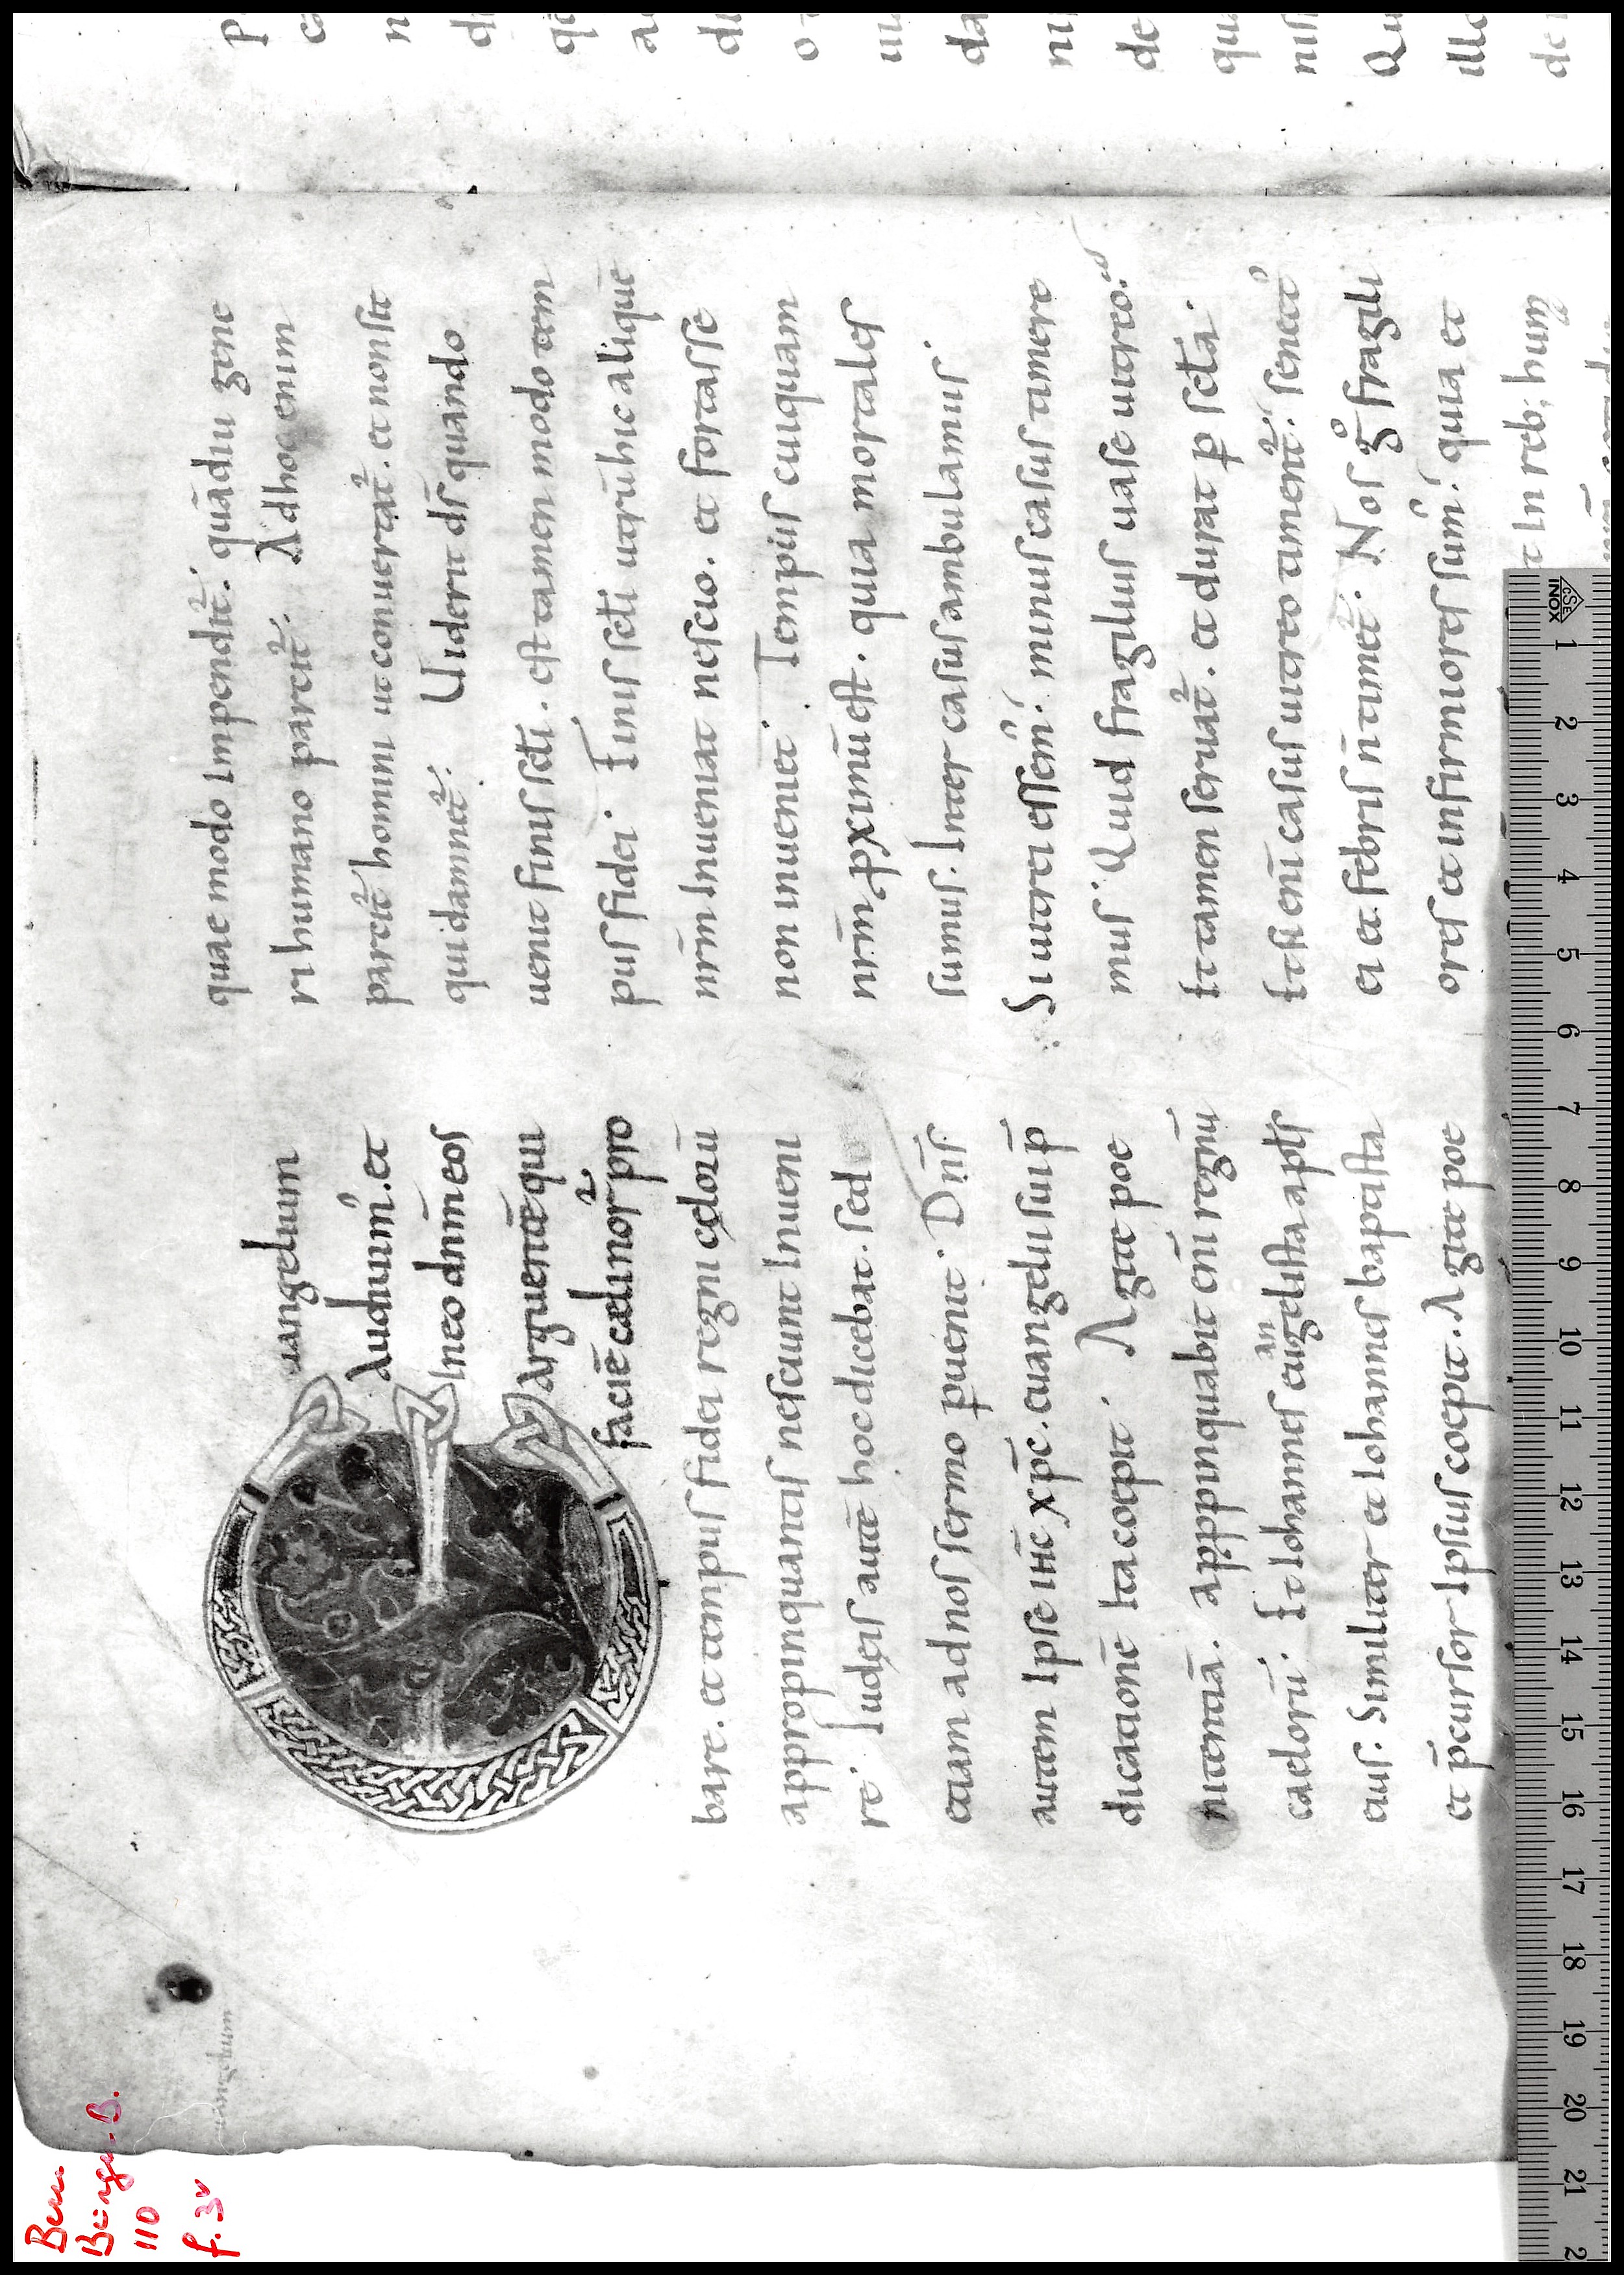 uangelium
Audiuim᷒. et
In eo dn̄m eos
arguentē qui
faciē cæli nor̄ pro
bare. et tempus fidei regni cęlorū
appropinquantis nesciunt inueni
re. Iudęis autē hoc dicebat. sed
etiam ad nos sermo ꝑuenit. Dn̄s
autem ipse ihc̄ xp̄c. euangelii sui p̄
dicationē ita coepit. Agite poe
nitentiā. appꝓpinquabit eni̅ regnū
caelorū. Et iohannes euangelista apl̄s
eius. Similiter et iohannes baptista
et p̄cursor ipsius coepit. Agite poe
quae modo impendit᷑. quādiu gene
ri humano parcit᷑. Ad hoc enim
parcit᷑ homini ut conuertat᷑. et non sit
qui damnet᷑. Uiderit ds̄ quando
uenit finis sc̄li. est tamen modo tem
pus fidei. Finis sc̄li utrū hic aliquē
nr̄m inueniat nescio. et fortasse
non inueniet. Tempus cuiquam
nr̄m ꝓximū est. quia mortales
sumus. Inter casus ambulamus.
Si uitrei essem᷒. minus casus timere
mus. Quid fragilius uase uitreo.
Et tamen seruat᷑. et durat ꝑ sc̄la.
Etsi eni̅ casus uitreo timent᷑. senect᷒
ei et febris n̄ timet᷑. Nos gͦ fragili
ores et infirmiores sum᷒. quia et
Bern
Bongars. B.
110
f. 3v
INOX
1
2
3
4
5
6
7
8
9
10
11
12
13
14
15
16
17
18
19
20
21
2